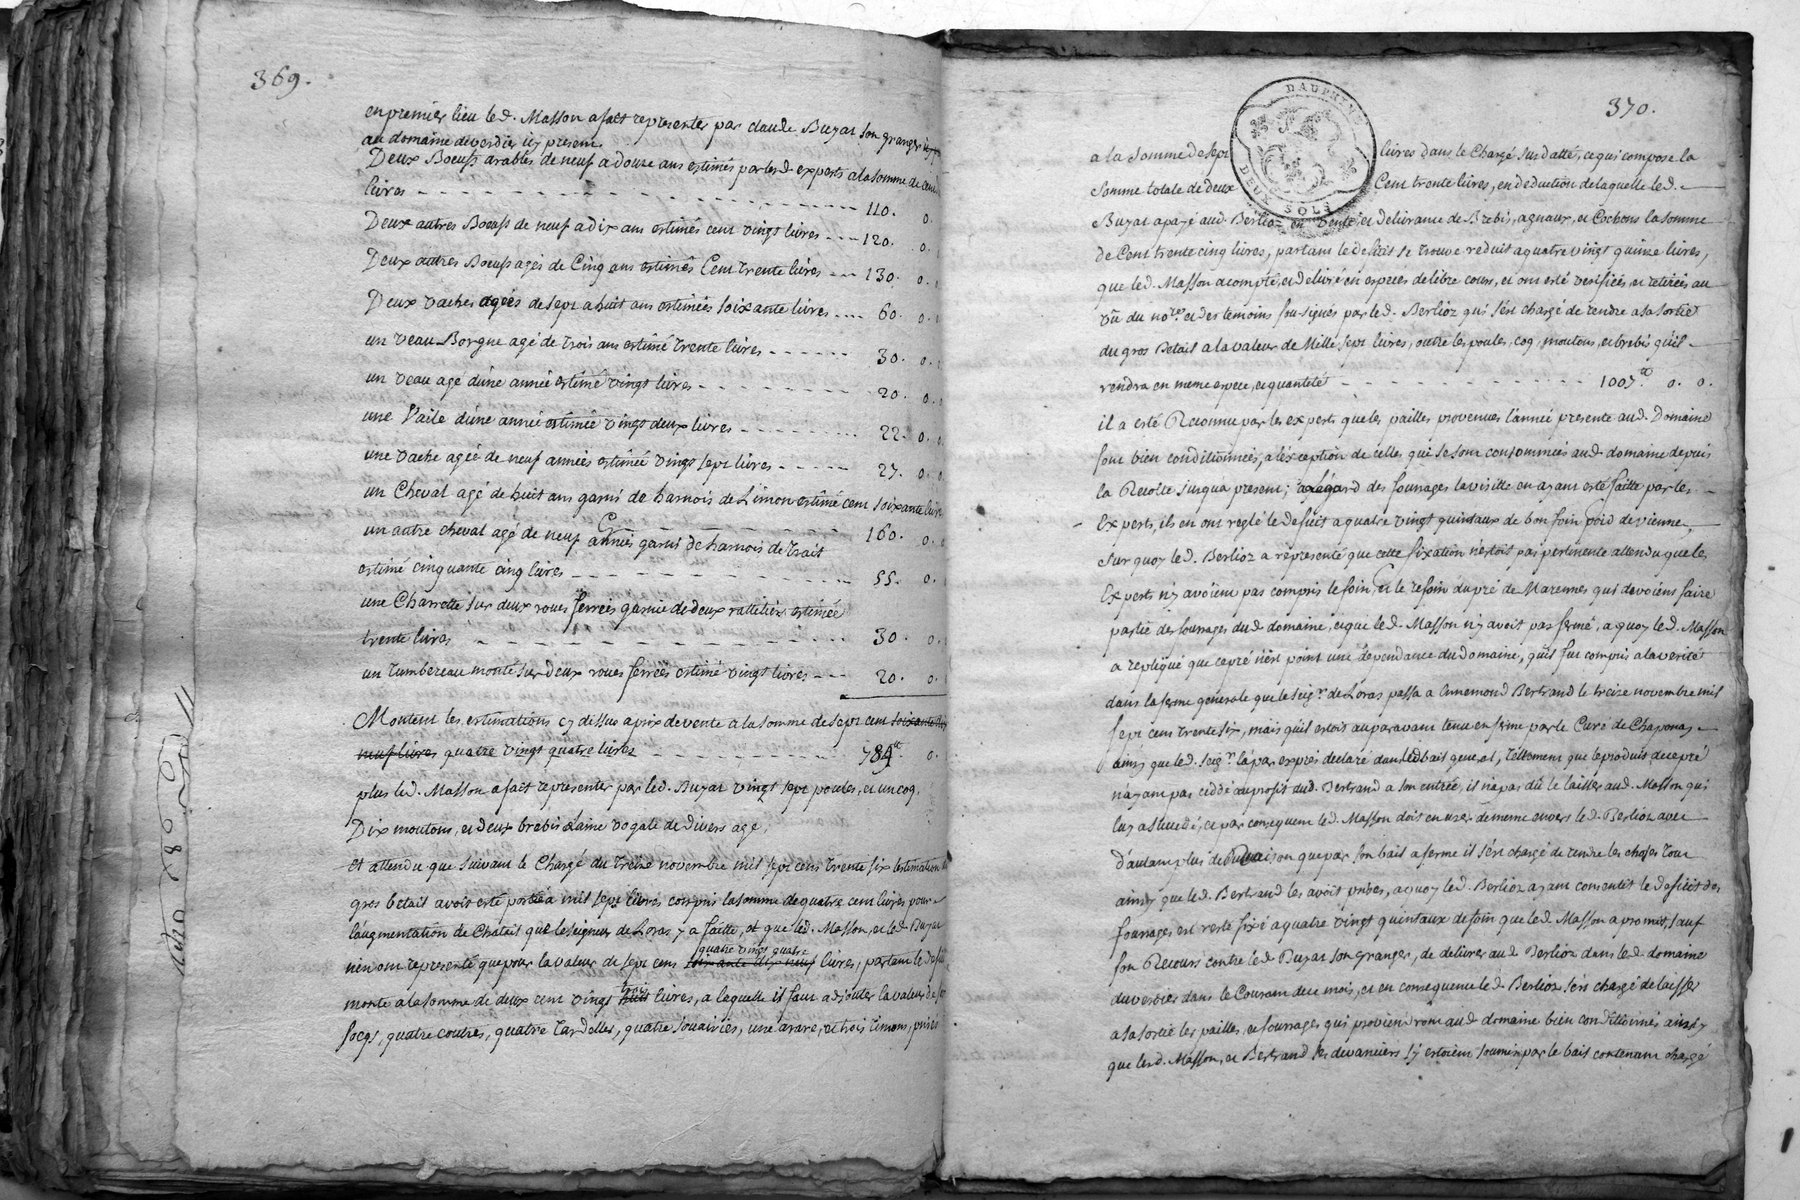 369.
en premier lieu led. Masson a fait representer par claude Buyat son granger
au domaine duverdier icy present
Deux Boeufs arables de neuf a douze ans estimés par lesd. experts a la somme de cent
livres 110. 0.
Deux autres Boeufs de neuf a dix ans estimés cent vingt livres 120. 0.
Deux autres Boeufs agés de Cinq ans estimés Cent trente livres 130. 0.
Deux vaches agées de sept a huit ans estimées soixante livres 60. 0.
un veau Borgne agé de trois ans estimé trente livres 30. 0.
un veau agé d'une année estimé vingt livres 20. 0.
une Vaile d'une année estimée vingt deux livres 22. 0. 0
une vache agée de neuf années estimée vingt sept livres 27. 0. 0
un Cheval agé de huit ans garni de harnois de Limon estimé cent soixante livres
160. 0.
un autre cheval agé de neuf années garni de harnois de trait
estimé cinquante cinq livres 55. 0.
une Charrette sur deux roues ferrées garnie de deux rattelier estimée
trente livres 30. 0.
un tumbereau monté sur deux roues ferrées estimé vingt livres 20. 0.
Montent les estimations cy dessus a prix de vente a la somme de sept cent soixante dix
neuf livres quatre vingt quatre livres 784. 0.
plus led. Masson a fait representer par led. Buyat vingt sept poules, et un coq,
Dix moutons, et deux brebis a laine de divers age,
Et attendu que suivant le Chargé du treize novembre mil sept cens trente six l'estimation
gros betail avoit esté portée a mil sept livres compris la somme de quatre cent livres pour
l'augmentation de Chatail que le seigneur de Loras y a faitte, et que led. Masson, et led. Buyat
n'en ont representé que pour la valeur de sept cens soixante dix neuf quatre vingt quatre livres, partant le deficit
monte a la somme de deux cent vingt huit trois livres, a laquelle il faut adjouter la valeur de
socqs, quatre coutres, quatre tardelles, quatre une arare, et trois timons, prisés
370.
DAUPHINÉ
DEUX SOLS
a la somme de sept livres dans le Chargé susdatté, ce qui compose la
somme totale de deux Cent trente livres, en deduction de laquelle led.
Buyat a payé aud. Berlioz en vente, et delivrance de Brebis, agnaux, et Cochons la somme
de Cent trente cinq livres, partant le deficit se trouve reduit a quatre vingt quinze livres,
que led. Masson a compté, et delivré en especes de libre cours, et ont esté verifiées, et retirées au
vû du not.re et des temoins sousignés par led. Berlioz qui s'est chargé de rendre a sa sortie
du gros Betail a la valeur de Mille sept livres, outre les poules, coq, moutons, et brebis qu'il
rendra en meme espece, et quantité 1007.tt 0. 0.
il a esté Reconnu par les experts que les pailles provenues l'année presente aud. Domaine
sont bien conditionnées, a l'exception de celles qui se sont consommées aud. domaine depuis
la Recolte jusqua present; a legard des fourrages la visitte en ayant esté faitte par les
Experts, ils en ont reglé le deficit a quatre vingt quintaux de bon foin poid de vienne,
sur quoy led. Berlioz a representé que cette fixation n'estoit pas pertinente attendu que les
Experts n'y avoient pas compris le foin, et le refoin du pré de Marennes qui devoient faire
partie des fourrages dud. domaine, et que led. Masson n'y avoit pas fermé, a quoy led. Masson
a repliqué que ce pré n'est point une dependance du domaine, qu'il fut compris a la verité
dans la ferme generale que le seig.r de Loras passa a Annemond Bertrand le treize novembre mil
sept cens trente six, mais qu'il estoit auparavant tenu en ferme par le Curé de Chaponay
ainsy que led. seig.r l'a par exprès declaré dans led. bail general, tellement que le produit de ce pré
n'ayant pas ceddé au profit dud. Bertrand a son entrée, il n'a pas dû le laisser aud. Masson qui
luy a succedé, et par consequent led. Masson doit en user de meme envers led. Berlioz avec
d'autant plus de Raison que par son bail a ferme il s'est chargé de rendre les choses tout
ainsy que led. Bertrand les avoit prises, a quoy led. Berlioz ayant consenti le deficit des
fourages est resté fixé a quatre vingt quintaux de foin que led. Masson a promit, sauf
son Recours contre led. Buyat son granger, de delivrer aud. Berlioz dans led. domaine
duverdier dans le Courant de ce mois, et en consequence led. Berlioz s'est chargé de laisser
a sa sortie les pailles, et fourrages qui proviendront aud. domaine bien conditionnés ainsy
que lesd. Masson, et Bertrand ses devanciers s'y estoient soumis par le bail contenant chargé